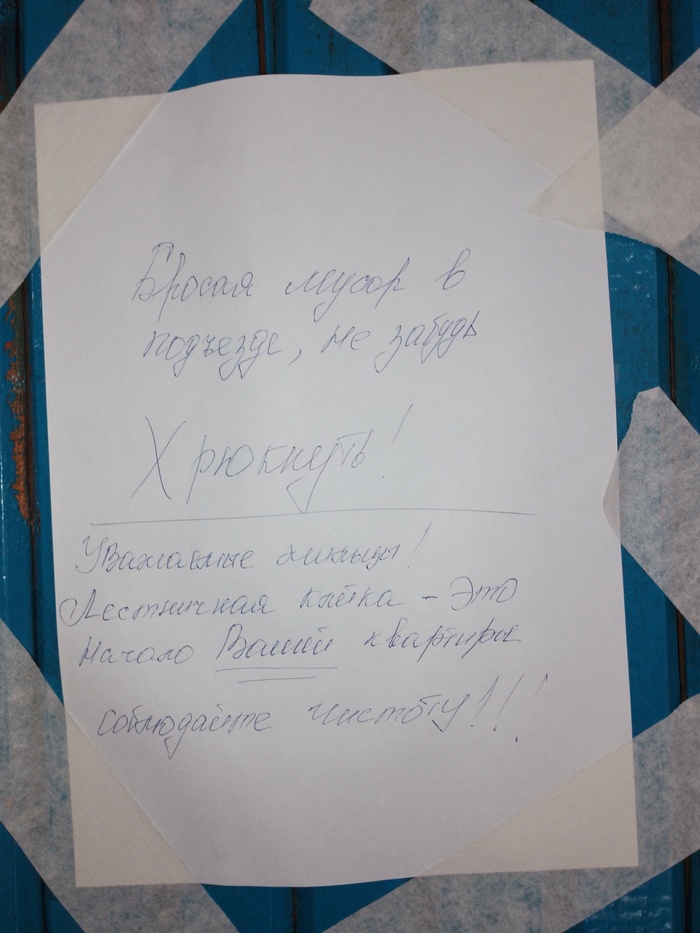 Бросая мусор в
подъезде, не забудь
Хрюкнуть!
Уважаемые жильцы!
Лестничная клетка - Это
Начало Вашей квартиры
соблюдайте чистоту!!!